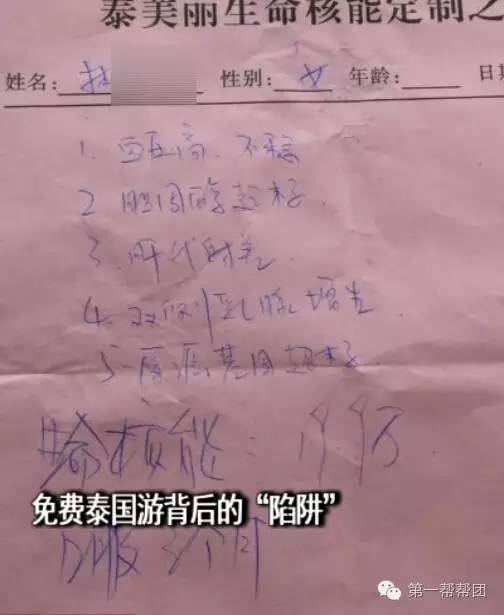 泰美丽生命核能定制之
姓名: 性别: 女 年龄: 日期
1. 血压高、不稳
2 胆固醇超标
3. 肝代谢差
4. 双侧乳腺增生
5. 癌源基因超标
输核能: 19.9万
服3个月
免费泰国游背后的“陷阱”
第一帮帮团